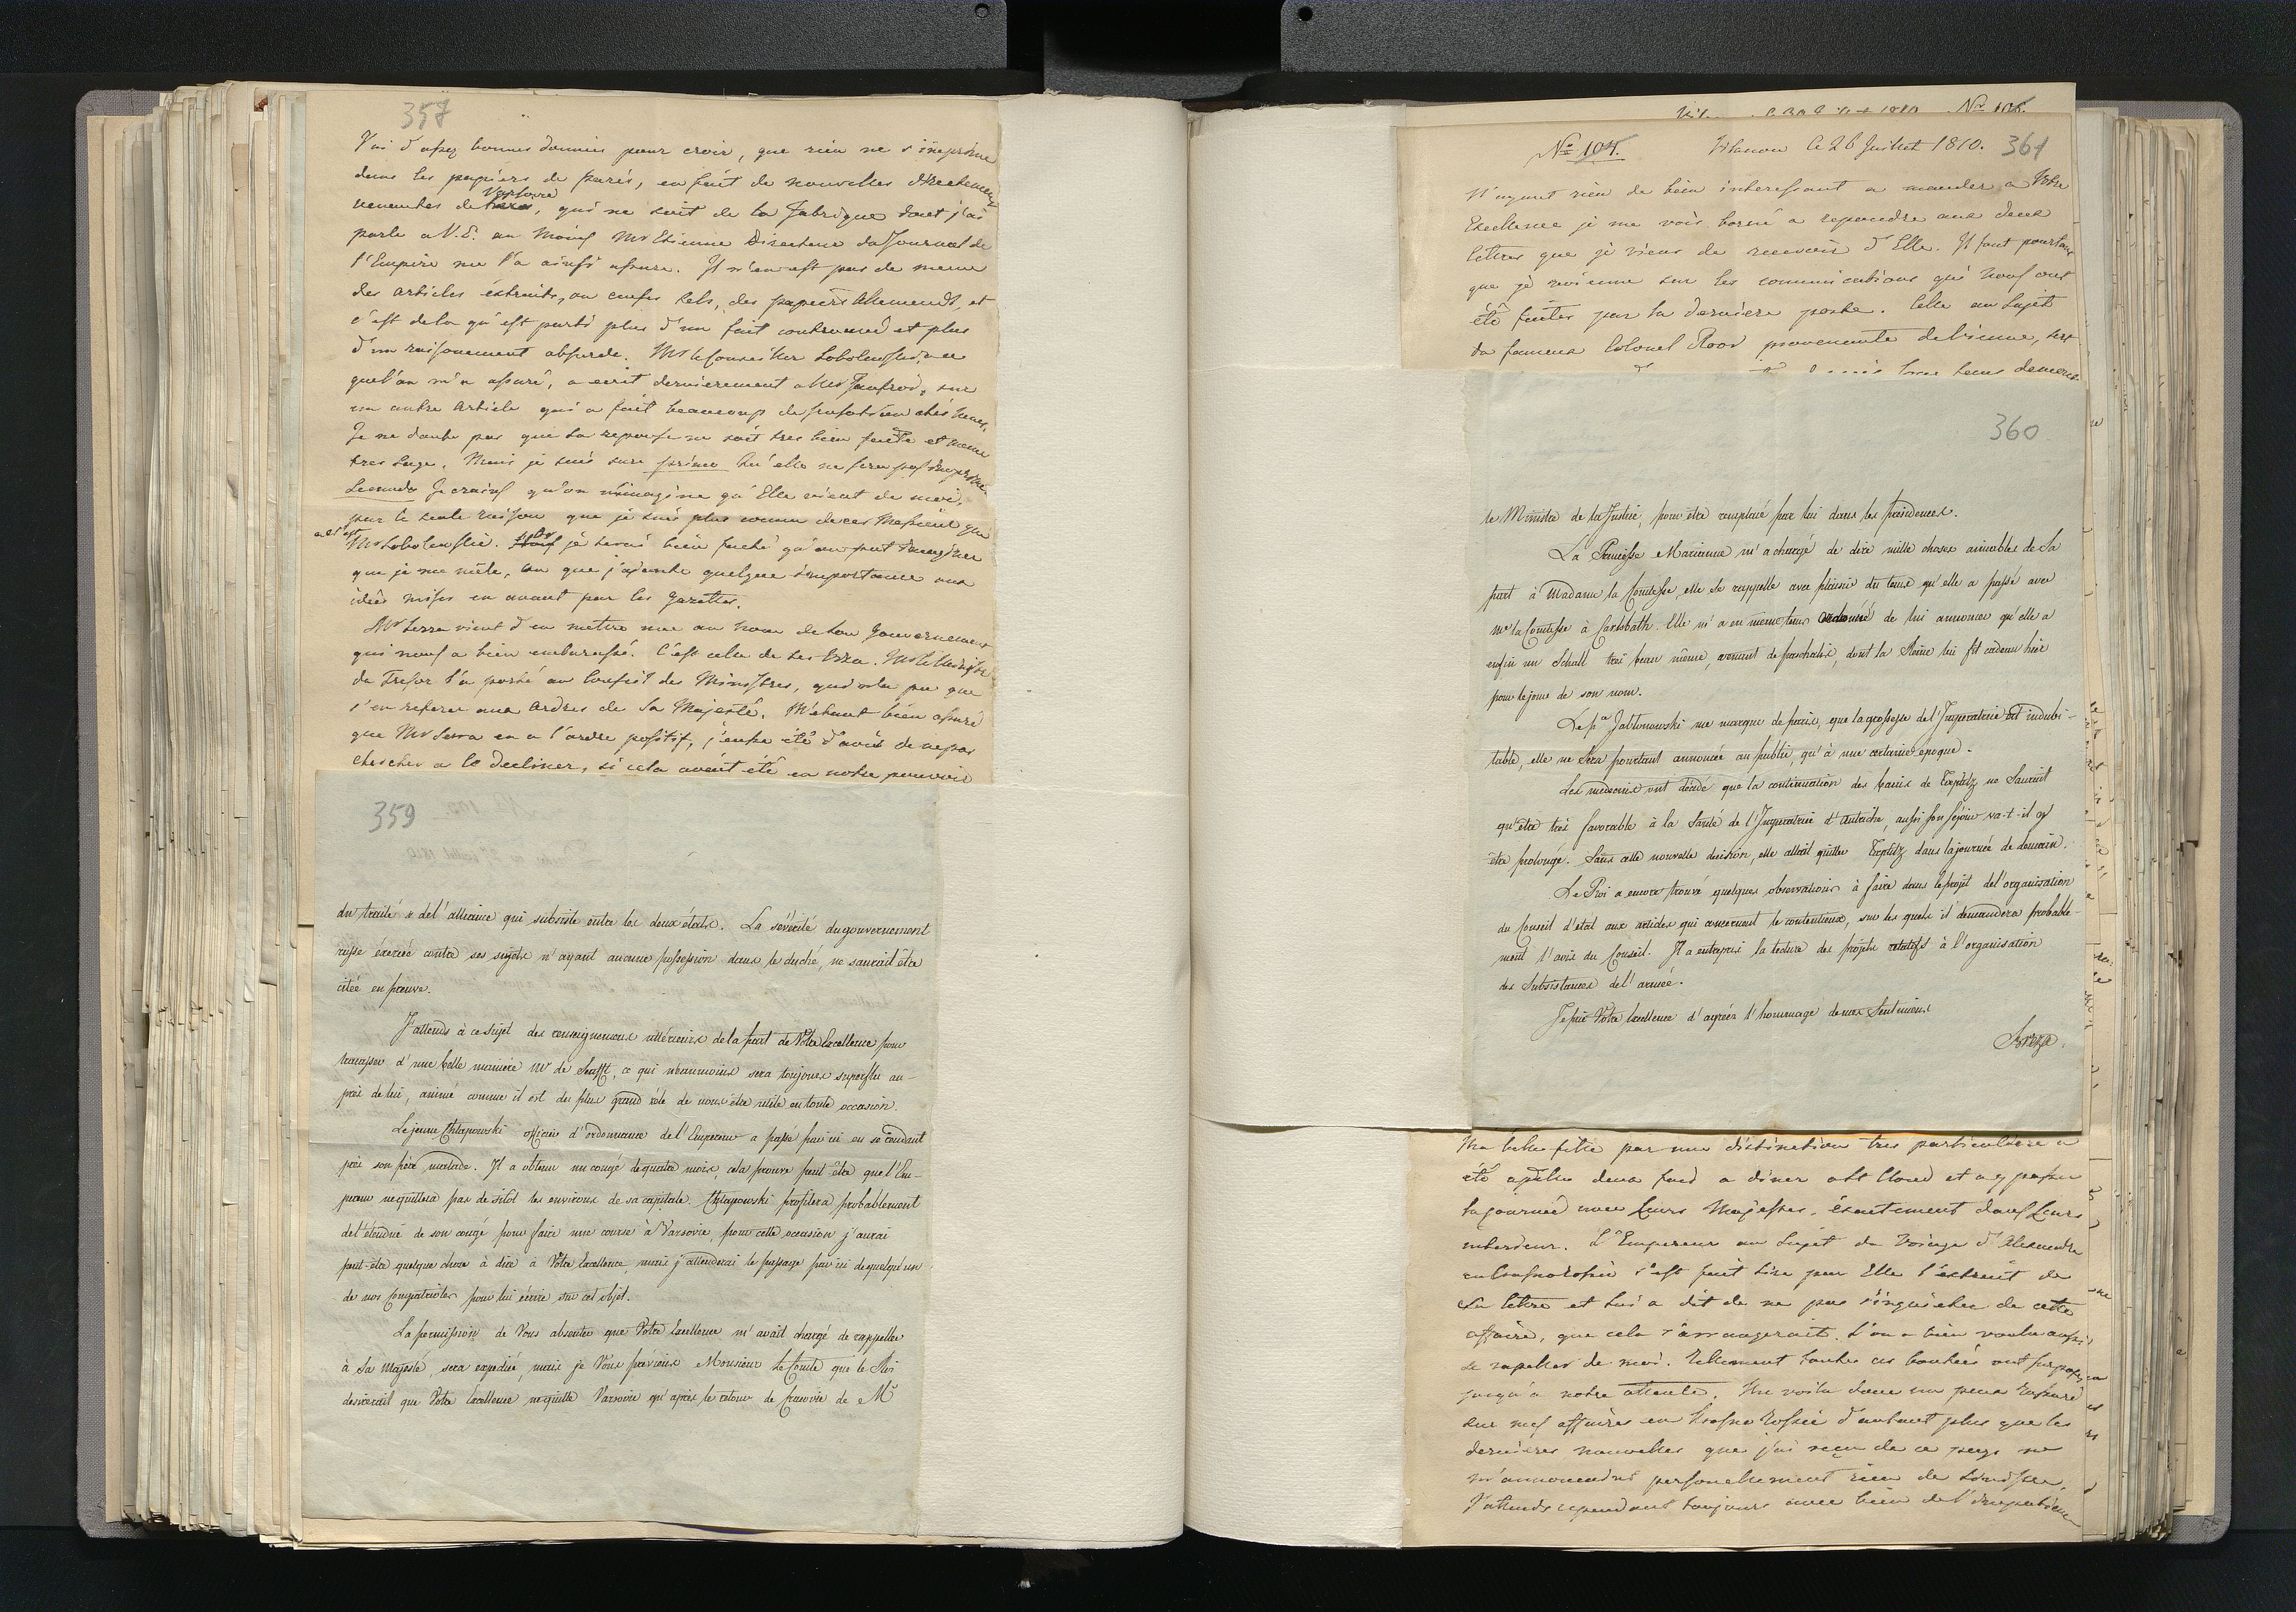 357
J'ai d'assez bonnes données pour croir, que rien ne s'imprime
dans les papiers de Paris, en fait de nouvelles directement
venantes de Varsovie, qui ne soit de la fabrique dont j'ai
parlé a V. E. au moins Mr Etienne Directeur du Journal de
l'Empire me l'a ainsi assuré. Il n'en est pas de meme
des articles extraits, ou censés tels, des papiers Allemands, et
c'est dela qu'est parti plus d'un fait controuvé et plus
d'un raisonement absurde. Mr le Conseiller Sobolewski, a ce
quel'on m'a assuré, a ecrit dernierement a Mr
un autre Article qui a fait beaucoup de sensation chés nous.
Je ne doute pas que la reponse ne soit tres bien faite et meme
tres sage. Mais je suis sure primo Qu'elle ne sera pas imprimé.
Secundo Je crains qu'on n'imagine qu'Elle vient de moi,
par la seule raison que je suis plus connu de ces Messieurs que
Mr Sobolewski. je serais bien faché qu'on put imaginer
que je me mêle, ou que j'ajoute quelque importance aux
idées mises en avant par les gazettes.
Mr Serra vient d'en mettre une au nom de son Gouvernement
qui nous a bien embarassé. C'est celle de
du Tresor l'a porté au Conseil des Ministres, qui n'a pu que
s'en referer aux ordres de Sa Majesté. M'etant bien assuré
que Mr Serra en a l'ordre positif, j'eusse été d'avis de ne pas
chercher a le decliner, si cela avait été en notre pouvoir
359
du traité & de l'alliance qui subsiste entre les deux états. La sévérité du gouvernement
russe éxercée contre ses sujets n'ayant aucune possession dans le duché, ne saurait être
citée en preuve.
J'attends à ce sujet des renseignemens ultérieurs de la part de Votre Excellence pour
d'une belle manière Mr de Senfft, ce qui néanmoins sera toujours superflu au-
près de lui, animé comme il est du plus grand zèle de nous être utile en toute occasion.
Le jeune Chlapowski officier d'ordonnance de l'Empereur a passé par ici en se rendant
près son père malade. Il a obtenu un congé de quatre mois, cela prouve peut être que l'Em-
pereur ne quittera pas de sitôt les environs de sa capitale. Chlapowski profitera probablement
de l'étendue de son congé pour faire une course à Varsovie, pour cette occasion j'aurai
peut-être quelque chose à dire à Votre Excellence, mais j'attenderai le passage par ici de quelqu'un
de nos Compatriotes pour lui écrire sur cet objet.
La permission de Vous absenter que Votre Excellence m'avait chargé de rappeller
à Sa Majesté, sera expediée, mais je Vous préviens Monsieur le Comte que le Roi
desirerait que Votre Excellence ne quitte Varsovie qu'après le retour de Cracovie de Mr
No 106.
No 105. Wilanow le 26 Juillet 1810. 361
N'ayant rien de bien interessant a mander a Votre
Excellence je me vois borné a repondre aux deux
lettres que je viens de recevoir d'Elle. Il faut pourtant
que je revienne sur les communications qui nous ont
été faites par la derniere poste. Celle au sujet
du fameux Colonel Roov provenante de Vienne,
360
le Ministre de la Justice, pour être remplacé par lui dans les présidences.
La Princesse Marianne m'a chargé de dire mille choses aimables de Sa
part à Madame la Comtesse, elle se rappelle avec plaisir du tems qu'elle a passé avec
Me la Comtesse à Carlsbath. Elle m'a en même tems ordonné de lui annoncer qu'elle a
enfin un Schall très beau même, dont la Reine lui fit cadeau hier
pour le jour de son nom.
Le Pce Jablonowski me marque de Paris, que la grossesse de l'Imperatrice est indubi-
table, elle ne sera pourtant annoncée au public, qu'à une certaine époque.
Les médecins ont décidé que la continuation des bains de Toeplitz ne saurait
qu'être très favorable à la Santé de l'Imperatrice d'Autriche, aussi son séjour va-t-il y
être prolongé. Sans cette nouvelle decision, elle allait quitter Toeplitz dans la journée de demain.
Le Roi a encore trouvé quelques observations à faire dans le projet de l'organisation
du Conseil d'état aux articles qui concernent le contentieux, sur les quels il demandera probable-
ment l'avis du Conseil. Il a entrepris la lecture des projets relatifs à l'organisation
des Subsistances de l'armée.
Je prie Votre Excellence d'agréer l'hommage de mes Sentimens
Breza.
Ma belle fille par une distinction tres particuliere a
été apellée deux fois a diner a St Cloud et a y passer
la journée avec Leurs Majestés, éxactement dans Leur
interieur. L'Empereur au sujet du Voiage d'Alexandre
s'est fait lire par Elle l'extrait de
sa lettre et lui a dit de ne pas s'inquieter de cette
affaire, que cela s'arrangerait. L'on a bien voulu aussi
se rapeller de moi. Tellement toutes ces bontées ont surpassé
jusqu'a notre attente. Me voila donc un peu rassuré
sur mes affaires en d'autant plus que les
dernieres nouvelles que j'ai reçu de ce pays ne
m'annoncent personellement rien de sinistre.
J'attends cependant toujours avec bien de l'impatience